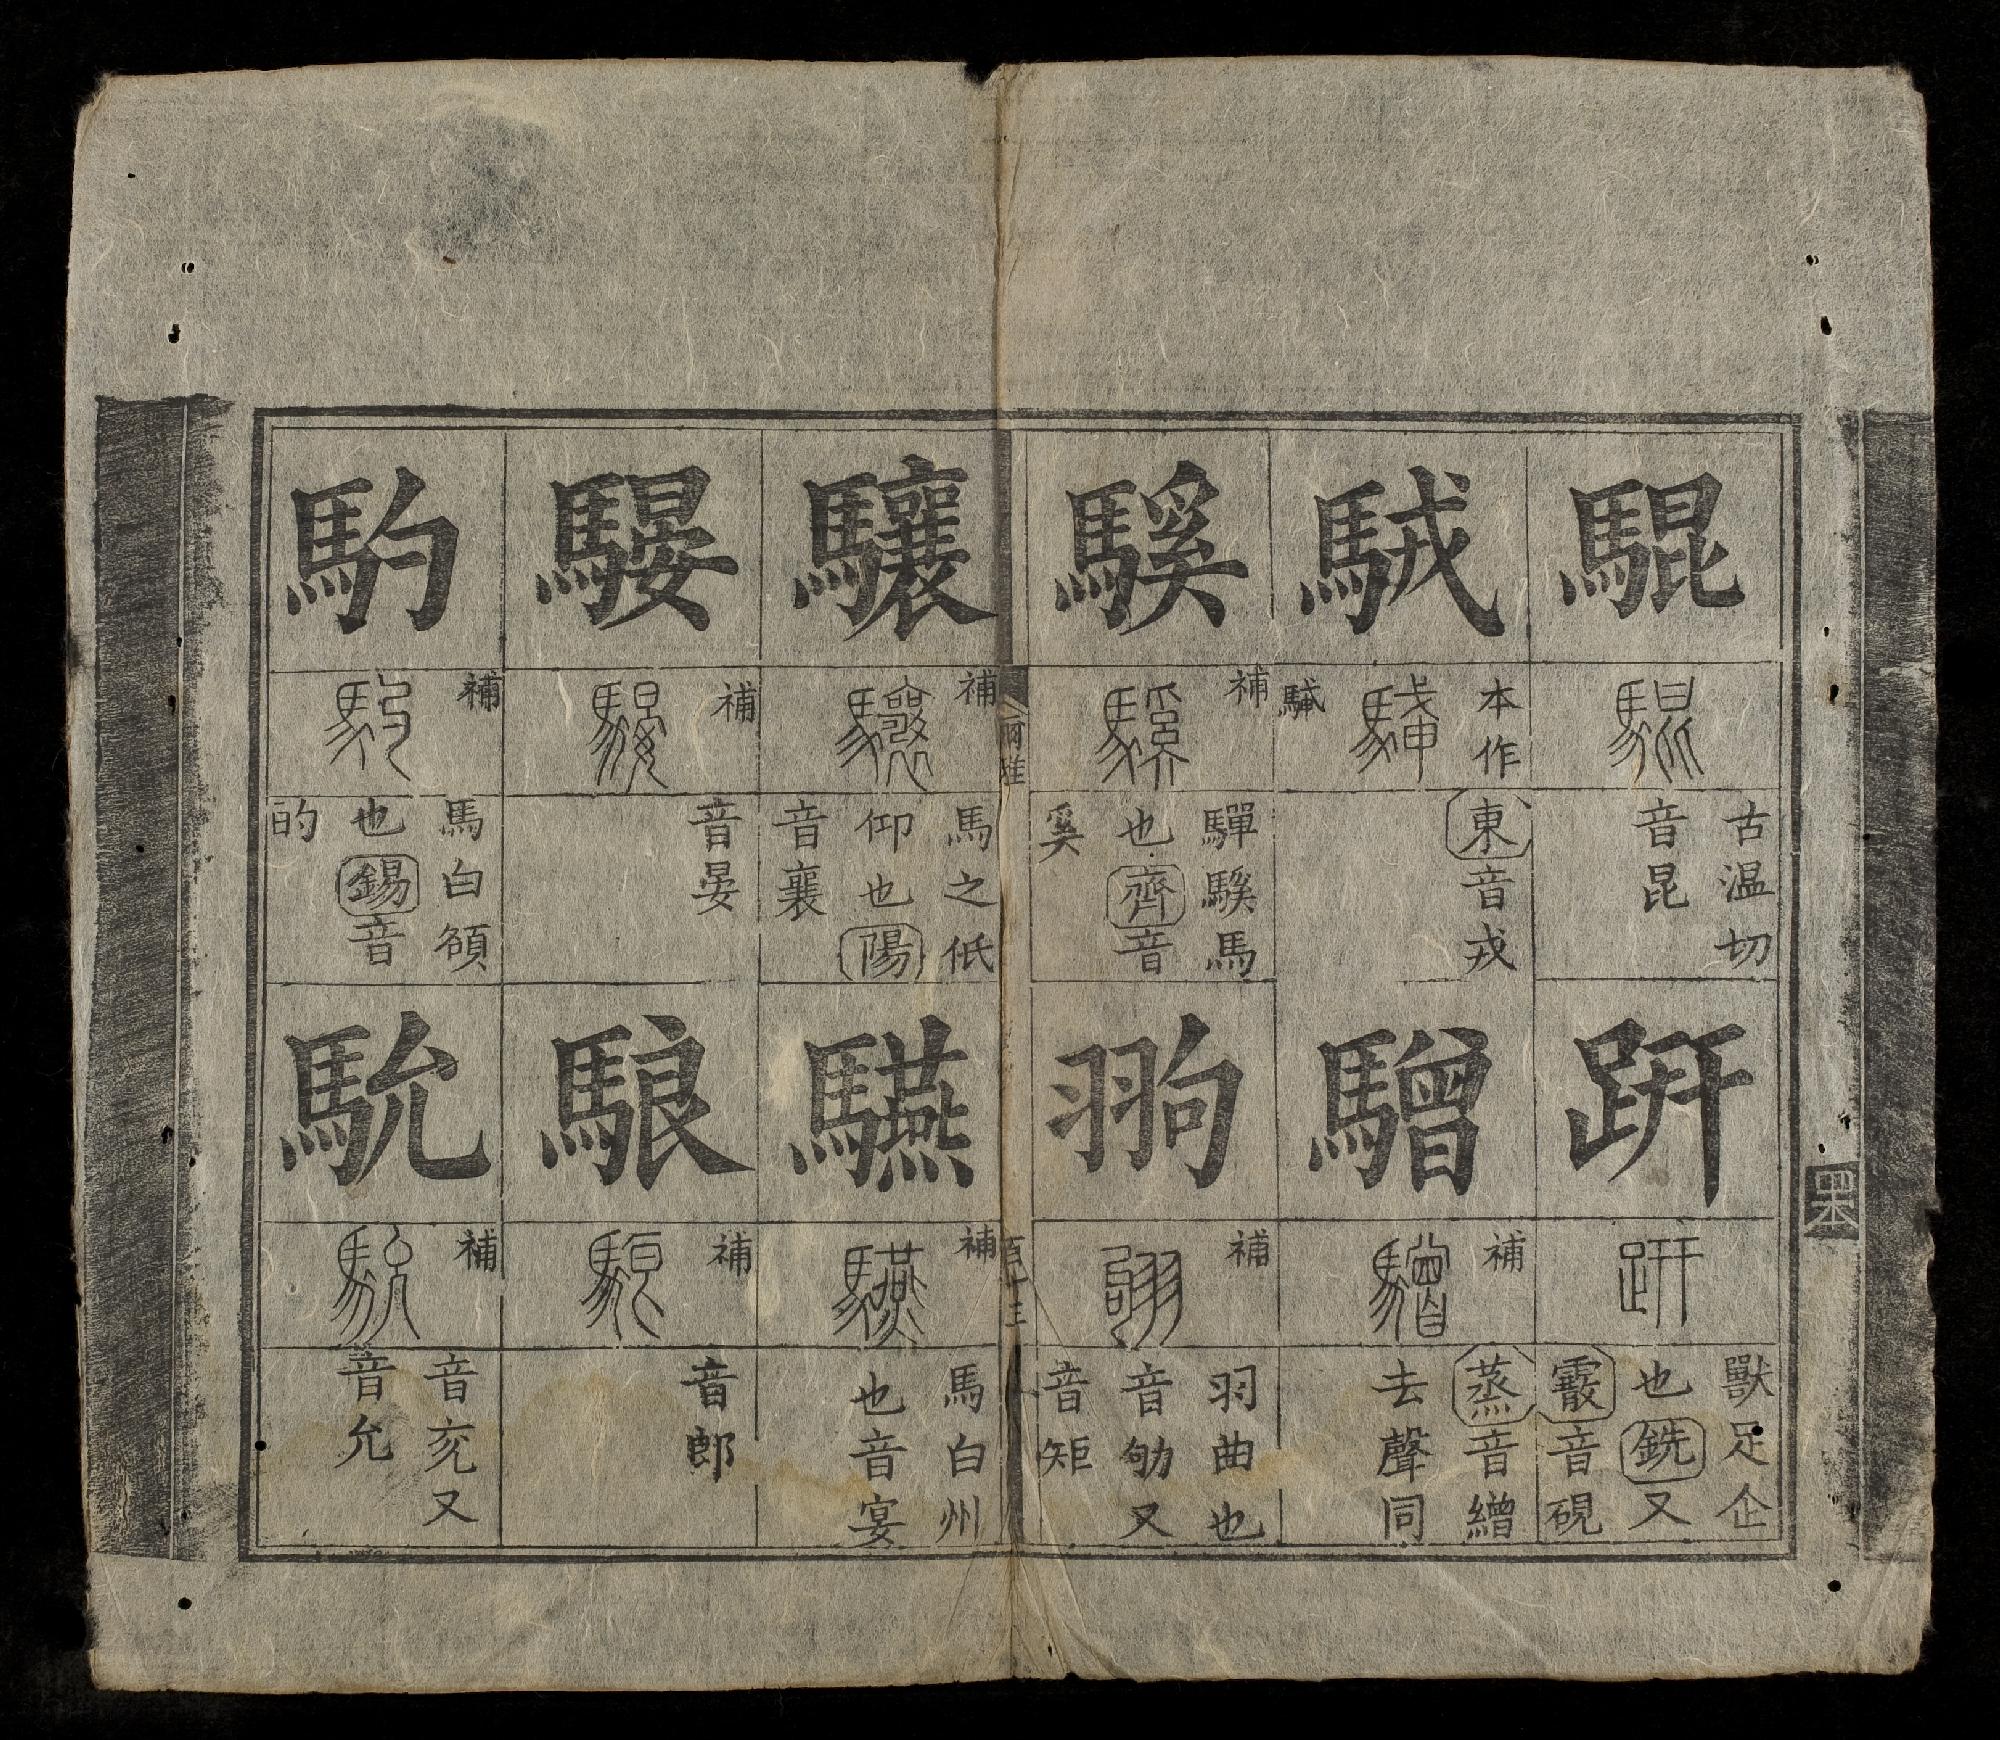 騉
古温切
音昆
駥
本作
𩧉
東音戎
騱
補
驒騱馬
也齊音
奚
趼
獸足企
也銑又
霰音硯
驓
補
蒸音繒
去聲同
翑
補
羽曲也
音劬又
音矩
爾雅
百十三
驤
補
馬之低
仰也陽
音襄
騴
補
音晏
馰
補
馬白頟
也錫音
的
驠
補
馬白州
也音宴
駺
補
音郎
馻
補
音兖又
音允